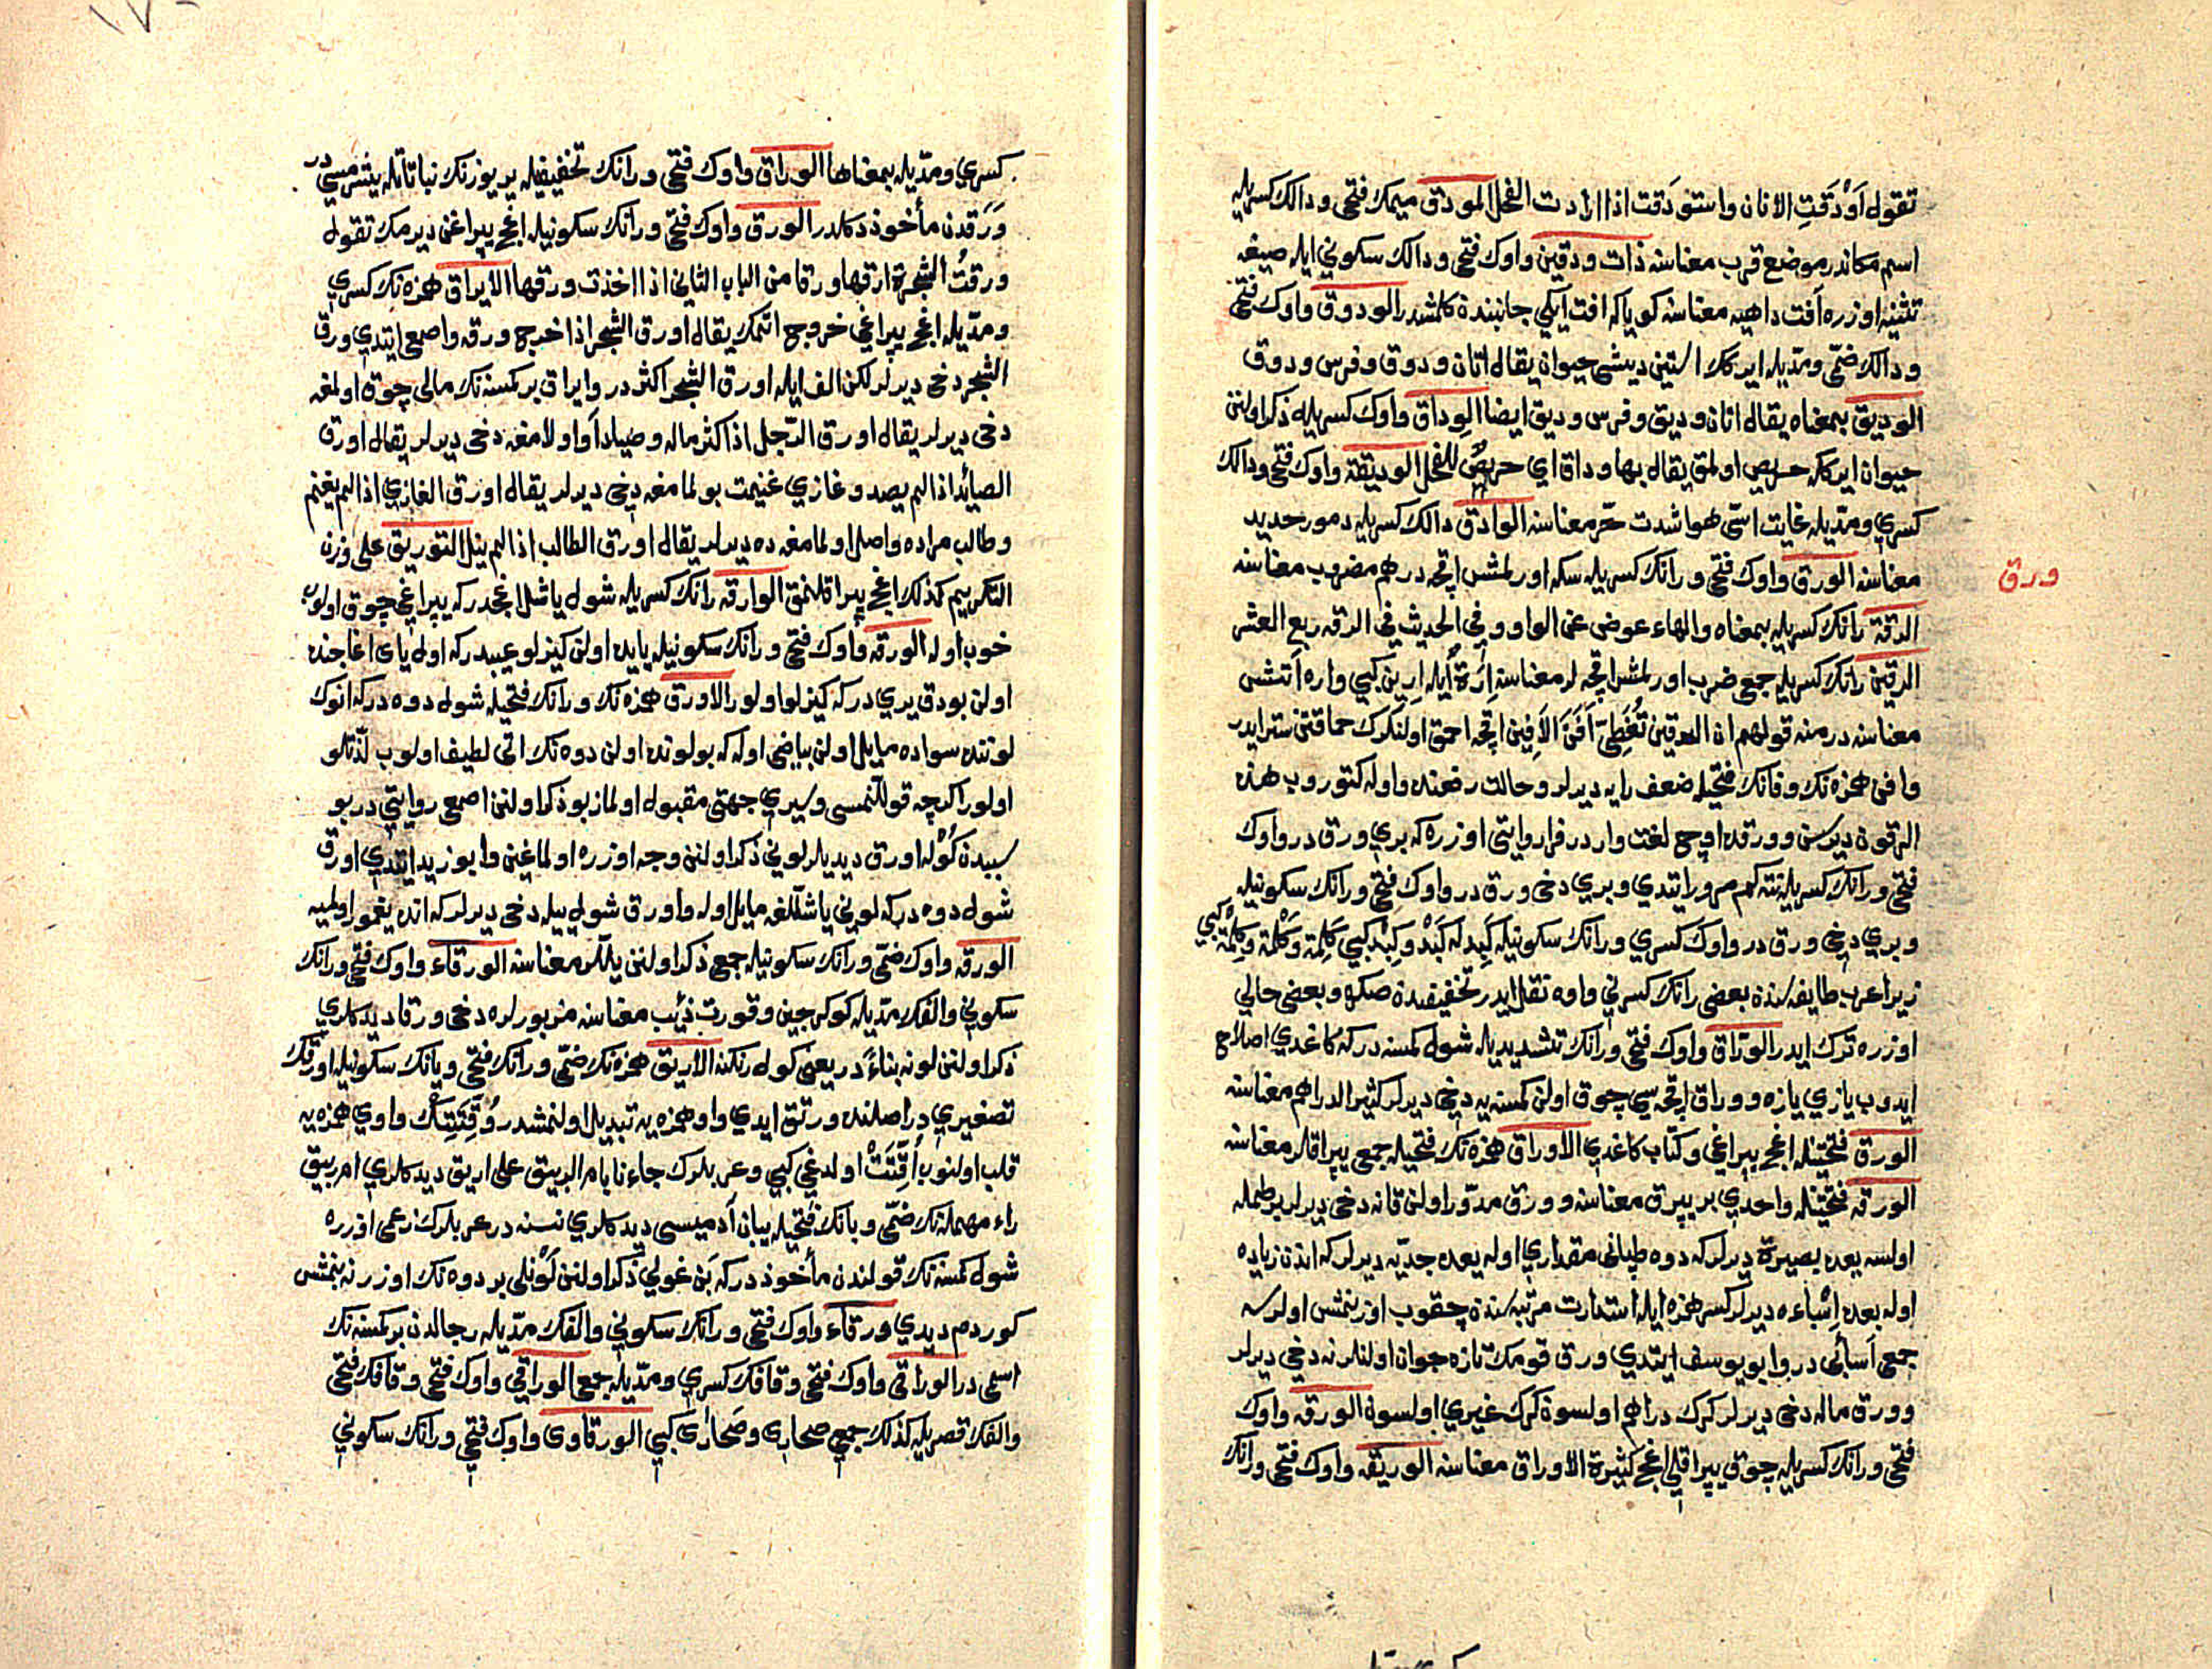 تقول اَوْدَقَتِ الاتان واستودَقت اذا ارادت الفحل المودق ميمك فتحى و دالك كسريله
اسم مكاندر موضع قرب معناسنه ذات ودقين واوك فتحى و دالك سكونى ايله صيغه
تثنيه اوزره آفت داهيه معناسنه كويا كه افت ايكى جانبنده كلمشدر الودوق واوك فتحى
و دالك ضمّى و مدّيله ايركك استين ديشى حيوان يقال اتان ودوق وفرس ودوق
الوديق بمعناه يقال اتان وديق وفرس وديق ايضا الوِداق واوك كسريله ذكر اولنن
حيوان ايركه حريص اولمق يقال بها وداق اي حريصٌ للفحل الوديقة واوك فتحى ودالك
كسرى ومدّيله غايت اسّى هوا شدت حرّ معناسنه الوادق دالك كسريله دمور حديد
معناسنه الورق واوك فتحى و رانك كسريله سكه اورلمش اقچه درهم مضروب معناسنه
ورق
الرقة رانك كسريله بمعناه والهاء عوض عن الواو وفي الحديث في الرقه ربع العشر
الرقين رانك كسريله جمع ضرب اورلمش اقچه لر معناسنه اِرَةٌ ايله اِرِين كبي واره آتش
معناسنه در منه قولهم ان الرقين تُغَطِّى اَفَنَ الاَفِين اقچه احمق اولنكرك حماقتن ستر ايدر
وافن همزه نك و فانك فتحيله ضعف رايه ديرلر و حالت رفعنده واوله كتوروب هذه
الرقون ديرسن و ورقده اوچ لغت واردر فرا روايتى اوزره كه برى ورق در واوك
فتحى و رانك كسريله نته كم مرور ايتدى و برى دخى ورق در واوك فتحى و رانك سكونيله
و برى دخى ورق در واوك كسرى و رانك سكونيله كَبِد له كَبْد و كِبْد كبي كَلِمَة و كَلْمَة و كِلْمَة كبي
زيرا عرب طايفه سنده بعضى رانك كسرنى واوه نقل ايدر تخفيفدن صكره و بعضى حالى
اوزره ترك ايدر الورّاق واوك فتحى و رانك تشديديله شول كمسنه در كه كاغدى اصلاح
ايدوب يازى يازه و وراق اقچه سى چوق اولن كمسنه يه دخى ديرلر كثير الدراهم معناسنه
الورق فتحيتله اغج يپراغى و كتاب كاغدى الاوراق همزه نك فتحيله جمع يپراقلر معناسنه
الورقه فتحيتله واحدى بر يپرق معناسنه و ورق مدوّر اولن قانه دخى ديرلر بر طمله
اولسه بعده بصيرة ديرلر كه دوه طپانى مقدارى اوله بعده جديّه ديرلر كه اندن زياده
اوله بعده اِشْباءه ديرلر كسر همزه ايله استدارت مرتبه سندن چقوب اوزنمش اولرسه
جمع اَسابى در و ابو يوسف ايتدى ورق قومك تازه جوان اولنلرنه دخى ديرلر
و ورق ماله دخى ديرلر كرك دراهم اولسون كرك غيرى اولسون الورقه واوك
فتحى و رانك كسريله چوق يپراقلى اغج كثيرة الاوراق معناسنه الوريقه واوك فتحى و رانك
كسرى و مدّيله بمعناها الوراق واوك فتحى و رانك تخفيفيله ير يوزنك نباتاتله يشرمسى در
وَرَقدن مأخوذ دكلدر الورق واوك فتحى و رانك سكونيله اغج يپراغن ديرمك تقول
ورقتُ الشجرة ارقها ورقا من الباب الثانى اذا اخذت ورقها الايراق همزه نك كسرى
و مدّيله اغج يپراغى خروج اتمك يقال اورق الشجر اذا خرج ورقه و اصمعى ايتدى ورق
الشجر دخى ديرلر لكن الف ايله اورق الشجر اكثر در و ايراق بر كمسنه نك مالى چوق اولمغه
دخى ديرلر يقال اورق الرّجل اذا كثر ماله و صيادآو اولامغه دخى ديرلر يقال اورق
الصيائد اذا لم يصد و غازى غنيمت بولمامغه دخى ديرلر يقال اورق الغازى اذا لم يغنم
و طالب مراده واصل اولمامغه ده ديرلر يقال اورق الطالب اذا لم ينل التوريق على وزن
التكريم كذلك اغج يپراقلنمق الوارقه رانك كسريله شول ياشل اغجدر كه يپراغى چوق اولوب
خوب اوله الورقه واوك فتحى و رانك سكونيله يايده اولن كيزلو عيبدر كه اول ياى اغاجنده
اولن بودق يرى در كه كيزلو اولور الاورق همزه نك و رانك فتحيله شول دوه در كه انوك
لوننده سواده مايل اولن بياضى اوله كه بولونده اولن دوه نك اتى لطيف اولوب لذّتلو
اولور اكرچه قوللنمسى و سيرى جهتى مقبول اولماز بو ذكر اولنن اصمعى روايتى در بو
سببدن كُوْله اورق ديديلر لونى ذكر اولنن وجه اوزره اولماغين و ابو زيد ايتدى اورق
شول دوه در كه لونى ياشللغه مايل اوله و اورق شول ييله دخى ديرلر كه انده يغمور اولميه
الورق واوك ضمّى و رانك سكونيله جمع ذكر اولنن ييللر معناسنه الورقاء واوك فتحى و رانك
سكونى و الفك مدّيله كوكرجين و قورت ذئب معناسنه مزبورلره دخى ورقا ديدكلرى
ذكر اولنن لونه بناءً در يعنى كول رنكنه الاريق همزه نك ضمّى و رانك فتحى و يانك سكونيله اورقك
تصغيرى در اصلنده وريق ايدى واو همزه يه تبديل اولنمشدر وُقِّتَتْ ك واوى همزه يه
قلب اولنوب اُقِّتَتْ اولدغى كبي و عربلرك جاءنا بام الربيق على اريق ديدكلرى ام ربيق
راء مهمله نك ضمّى و بانك فتحيله يبان آدميسى ديدكلرى نسنه در عربلرك زعمى اوزره
شول كمسنه نك قولندن مأخوذ در كه بَن غولى ذكر اولنن كُوْنلى بر دوه نك اوزرنه بنمش
كوردم ديدى ورقاء واوك فتحى و رانك سكونى و الفك مدّيله رجالدن بر كمسنه نك
اسمى در الوراقى واوك فتحى و قافك كسرى و مدّيله جمع الوراقى واوك فتحى و قافك فتحى
و الفك قصريله كذلك جمع صحارى و صَحارَى كبي الورقاوى واوك فتحى و رانك سكونى